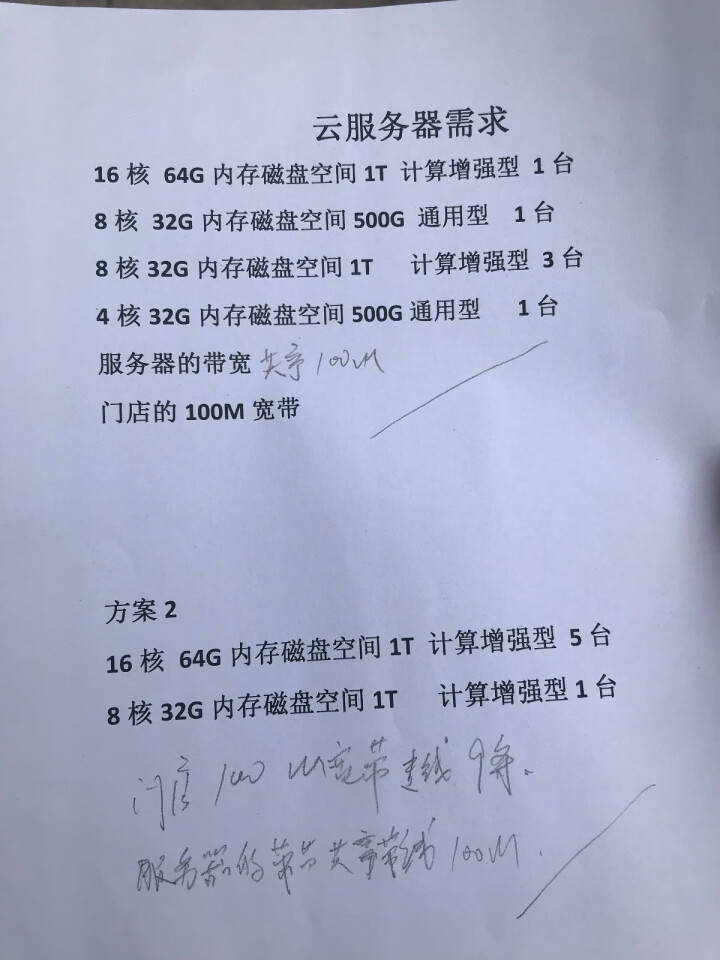 云服务器需求
16 核 64G 内存磁盘空间 1T 计算增强型 1 台
8 核 32G 内存磁盘空间 500G 通用型 1 台
8 核 32G 内存磁盘空间 1T 计算增强型 3 台
4 核 32G 内存磁盘空间 500G 通用型 1 台
服务器的带宽 共享 100M
门店的 100M 宽带
方案 2
16 核 64G 内存磁盘空间 1T 计算增强型 5 台
8 核 32G 内存磁盘空间 1T 计算增强型 1 台
门店 100M 宽带 线 9条.
服务器的带 共享带 100M.